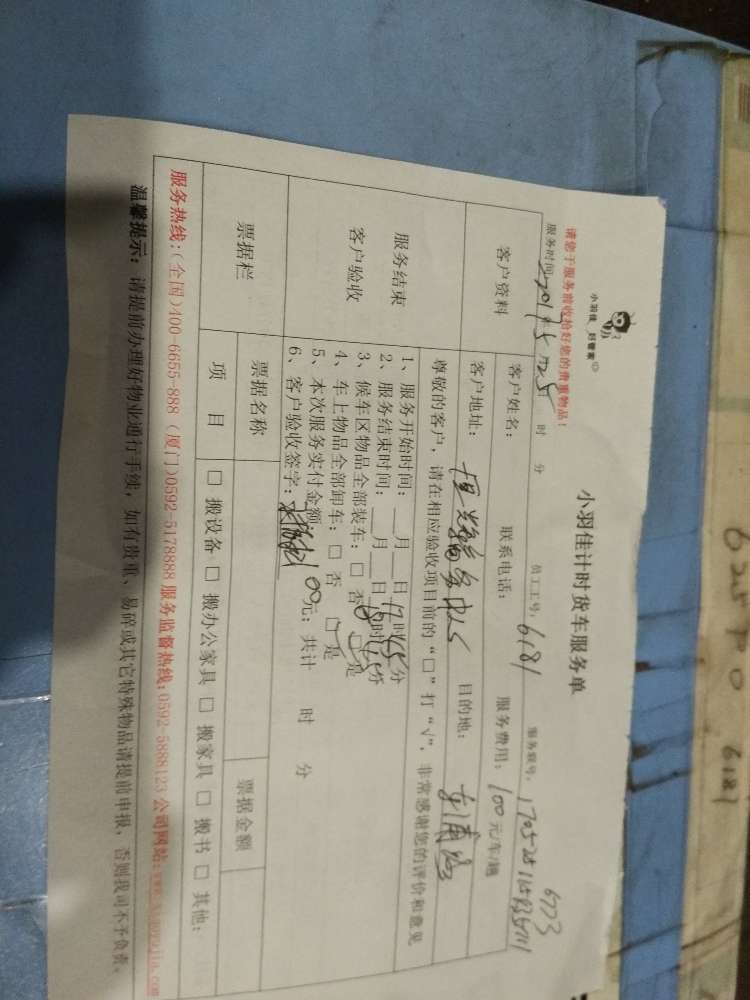 小羽佳 好管家
小羽佳计时货车服务单
请您于服务前收拾好您的贵重物品!
服务时间: 时 分 员工工号: 6181 服务账号:
6773
客户资料
客户姓名: 联系电话: 服务费用: 100元/车/趟
客户地址: 目的地: 东浦路
尊敬的客户,请在相应验收项目前的“□”打“√”,非常感谢您的评价和意见
服务结束
客户验收
1、服务开始时间:__月__日17时45分
2、服务结束时间:__月__日18时15分
3、候车区物品全部装车:□ 否 □ 是
4、车上物品全部卸车:□ 否 □ 是
5、本次服务实付金额: 100元; 共计 时 分
6、客户验收签字:
票据栏
票据名称 票据金额
项 目 □ 搬设备 □ 搬办公家具 □ 搬家具 □ 搬书 □ 其他:
服务热线:(全国)400-6655-888 (厦门)0592-5178888 服务监督热线:0592-5888123 公司网站:
温馨提示: 请提前办理好物业通行手续,如有贵重、易碎或其它特殊物品请提前申报,否则我司不予负责。
6181